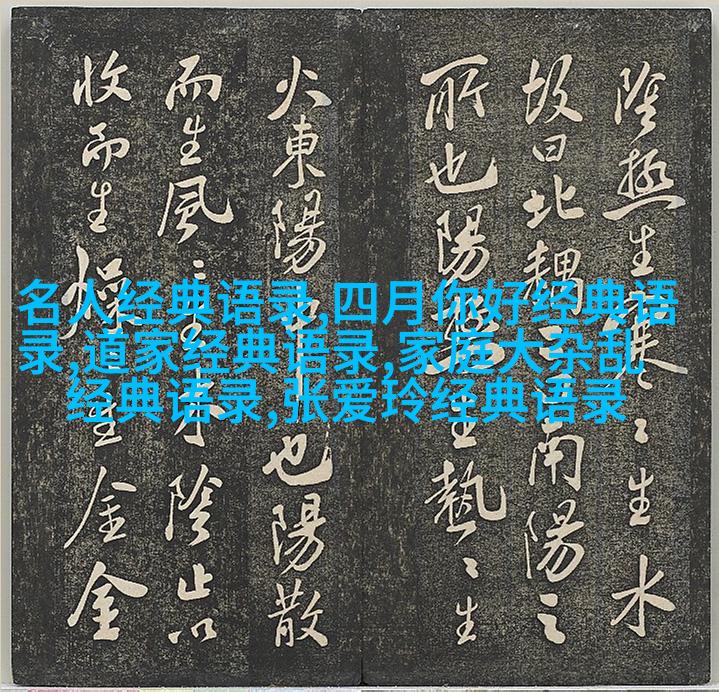 陰極生寒〻生水
故曰北耦南陽之
所也陽生熱〻生
火東陽也陽散
而生風〻生木陰止以
收而生燥生金金
名人经典语录,四月你好经典语
录,道家经典语录,家庭大杂乱
经典语录,张爱玲经典语录